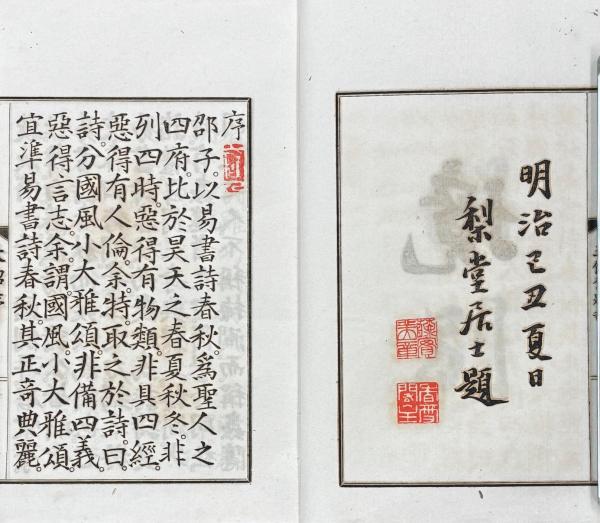 明治己丑夏日
梨堂居士題
序
邵子。以易書詩春秋。爲聖人之
四府。比於昊天之春夏秋冬。非
列四時。惡得有物類。非具四經。
惡得有人倫。余特取之於詩。曰。
詩。分國風小大雅頌。非備四義。
惡得言志。余謂國風。小大雅頌。
宜準易書詩春秋。其正奇典麗。